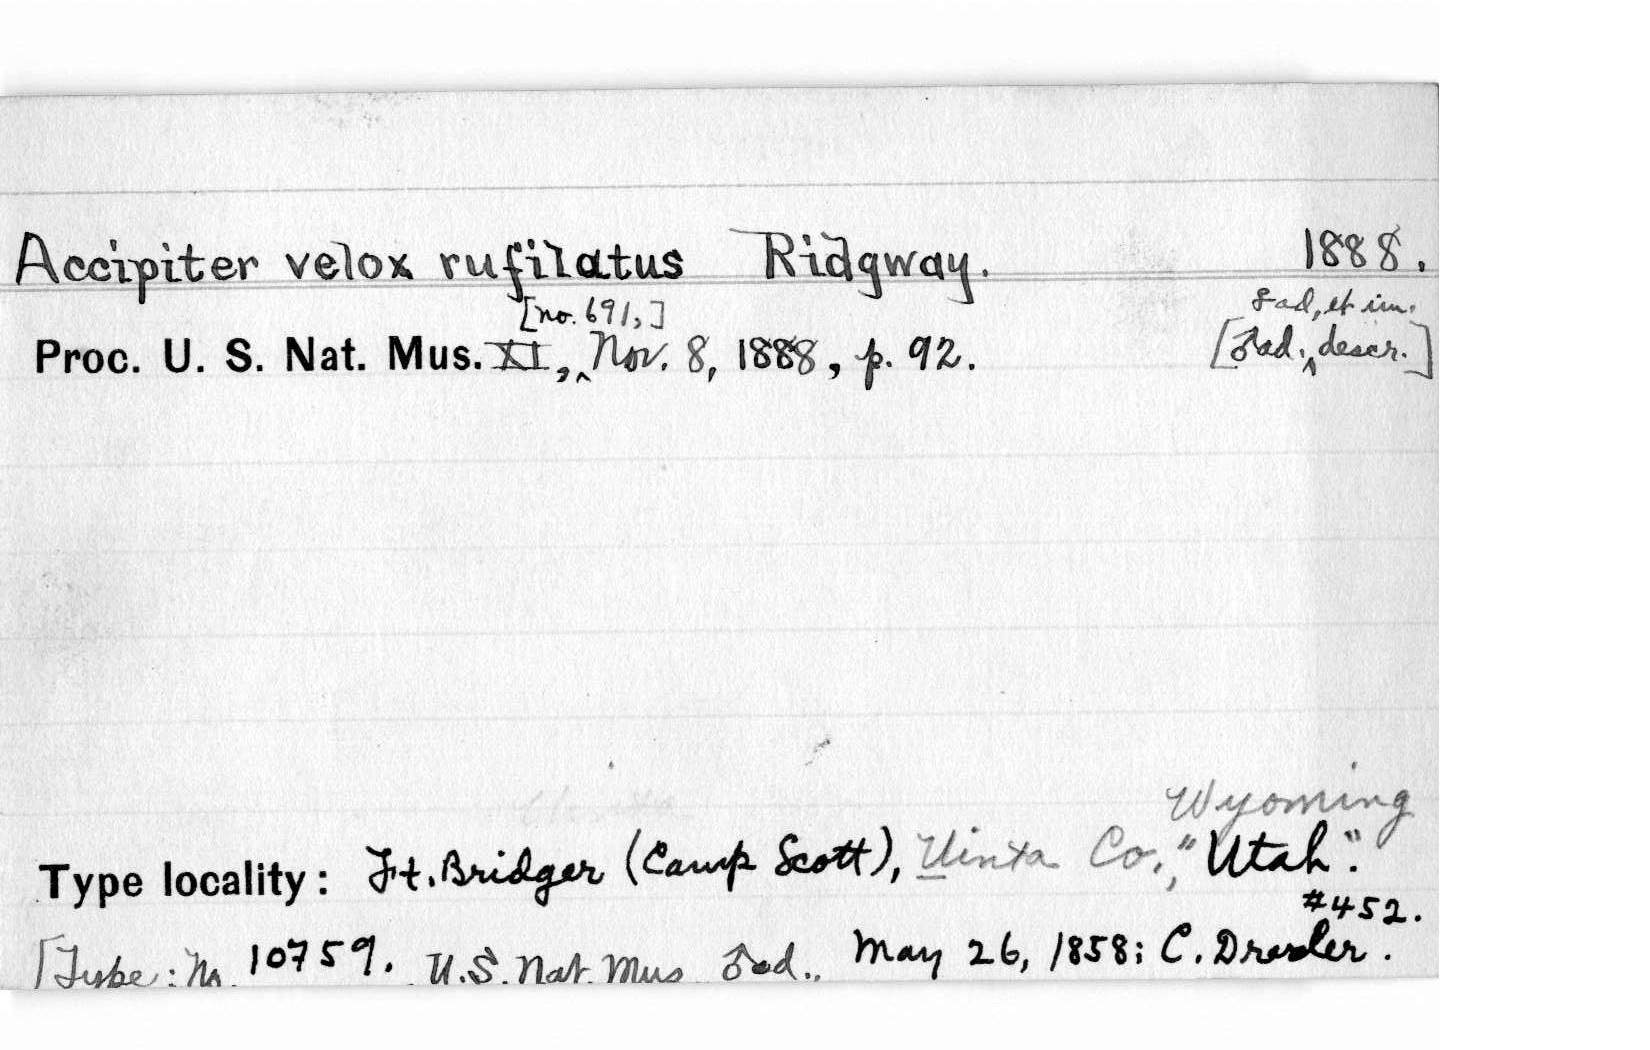 Accipiter velox rufilatus Ridgway. 1888.
[no. 691,] ♀ad, et im.
Proc. U. S. Nat. Mus. XI, ‸ Nov. 8, 1888, p. 92. [♂ad. ‸ descr.]
Wyoming
Type locality: Ft. Bridger (Camp Scott), Uinta Co., "Utah".
#452.
[Type: No. 10759. U.S. Nat. Mus. ♂ad., May 26, 1858; C. Drexler.